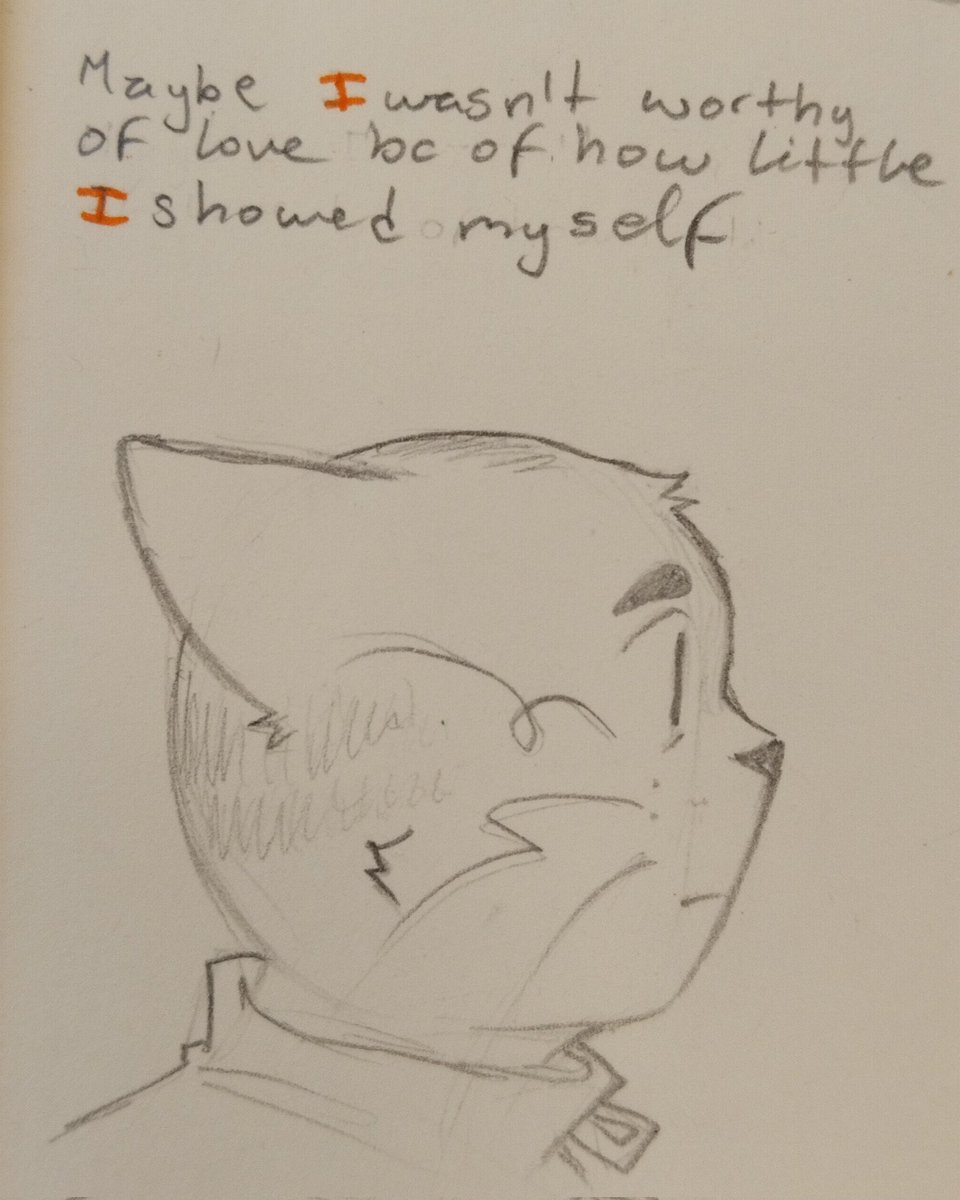 Maybe I wasn't worthy
of love bc of how little
I showed myself